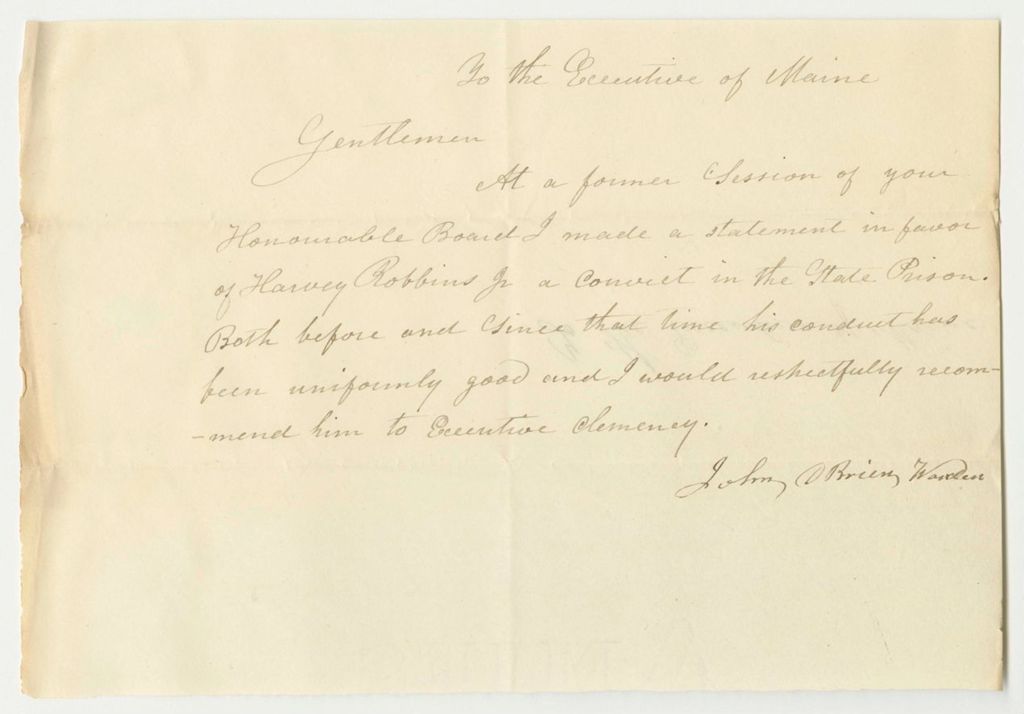 To the Executive of Maine
Gentlemen
At a former Session of your
Honourable Board I made a statement in favor
of Harvey Robbins Jr a Convict in the State Prison.
Both before and Since that time his conduct has
been uniformly good and I would respectfully recom-
-mend him to Executive Clemency.
John O Brien, Warden